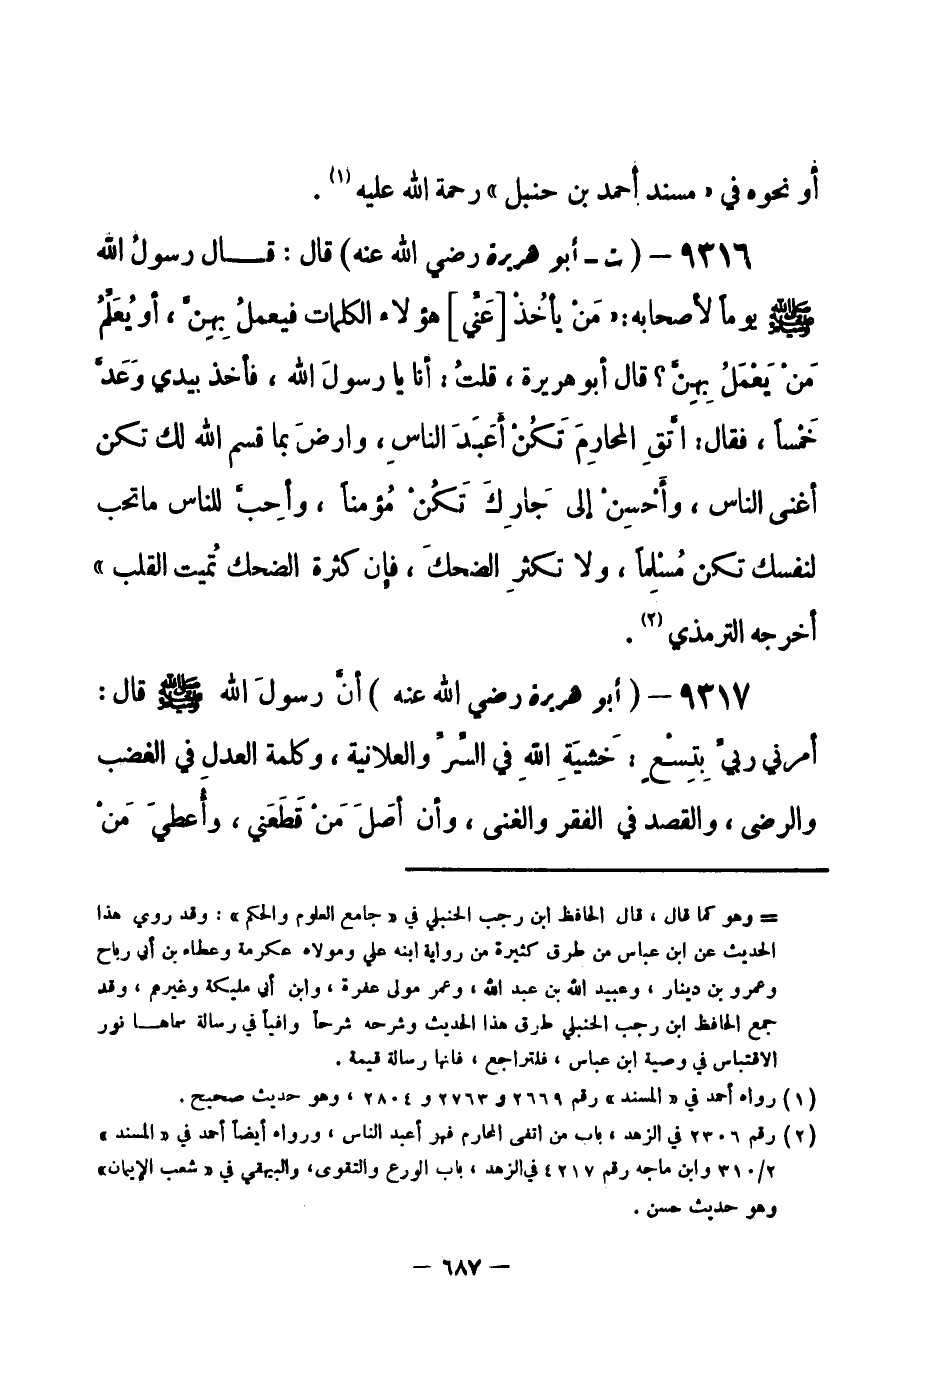 أو نحوه في « مسند أحمد بن حنبل » رحمة الله عليه (١) .
٩٣١٦ – ( ت – أبو هريرة رضي الله عنه ) قال : قـــال رسولُ الله
ﷺ يوماً لأصحابه : « مَنْ يأخُذْ [ عَنِّي ] هؤلاء الكلمات فيعملُ بِهِنَّ ، أو يُعَلِّمُ
مَنْ يَعْمَلُ بِهِنَّ ؟ قال أبو هريرة ، قلتُ : أنا يا رسولَ الله ، فأخذ بيدي وَعَدَّ
خَمْساً ، فقال : اتَّقِ المحارِمَ تَكُنْ أَعبَدَ الناسِ ، وارضَ بما قسم الله لك تكن
أغنى الناس ، وأَحْسِنْ إلى جَارِكَ تَكُنْ مُؤمناً ، وأحِبَّ للناس ماتحب
لنفسك تكن مُسْلِماً ، ولا تكثرِ الضحكَ ، فإن كثرة الضحك تُميت القلب »
أخرجه الترمذي (٢) .
٩٣١٧ – ( أبو هريرة رضي الله عنه ) أنَّ رسولَ الله ﷺ قال :
أمرني ربيَّ بِتِسْعٍ : خَشيَةِ اللهِ في السِّرِّ والعلانية ، وكلمة العدلِ في الغضب
والرضى ، والقصد في الفقر والغنى ، وأن أصَلَ مَنْ قَطَعَني ، وأُعطيَ مَنْ
= وهو كما قال ، قال الحافظ ابن رجب الحنبلي في « جامع العلوم والحكم » : وقد روي هذا
الحديث عن ابن عباس من طرق كثيرة من رواية ابنه علي ومولاه عكرمة وعطاء بن أبي رباح
وعمرو بن دينار ، وعبيد الله بن عبد الله ، وعمر مولى عفرة ، وابن أبي مليكة وغيرم ، وقد
جمع الحافظ ابن رجب الحنبلي طرق هذا الحديث وشرحه شرحاً وافياً في رسالة سماهـا نور
الاقتباس في وصية ابن عباس ، فلتراجع ، فانها رسالة قيمة .
(١) رواه أحمد في « المسند » رقم ٢٦٦٩ و ٢٧٦٣ و ٢٨٠٤ ، وهو حديث صحيح .
(٢) رقم ٢٣٠٦ في الزهد ، باب من اتقى المحارم فهو أعبد الناس ، ورواه أيضاً أحمد في « المسند »
٣١٠/٢ وابن ماجه رقم ٤٢١٧ في الزهد ، باب الورع والتقوى ، والبيهقي في « شعب الإيمان »
وهو حديث حسن .
– ٦٨٧ –